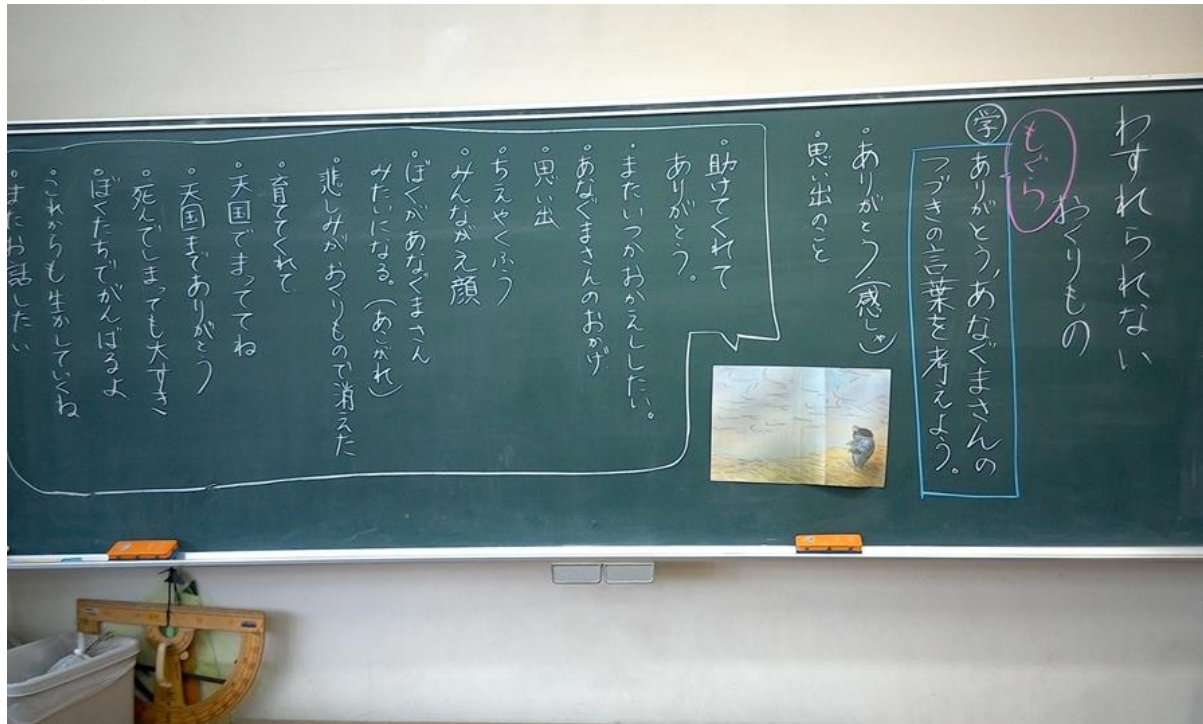 わすれられない
おくりもの
もぐら
学
ありがとう、あなぐまさんの
つづきの言葉を考えよう。
・ありがとう(感しゃ)
・思い出のこと
・助けてくれて
ありがとう。
・またいつかおかえししたい。
・あなぐまさんのおかげ
・思い出
・ちえやくふう
・みんながえ顔
・ぼくがあなぐまさん
みたいになる。(あこがれ)
・悲しみがおくりもので消えた
・育ててくれて
・天国でまっててね
・天国までありがとう
・死んでしまっても大すき
・ぼくたちでがんばるよ
・これからも生かしていくね
・またお話したい